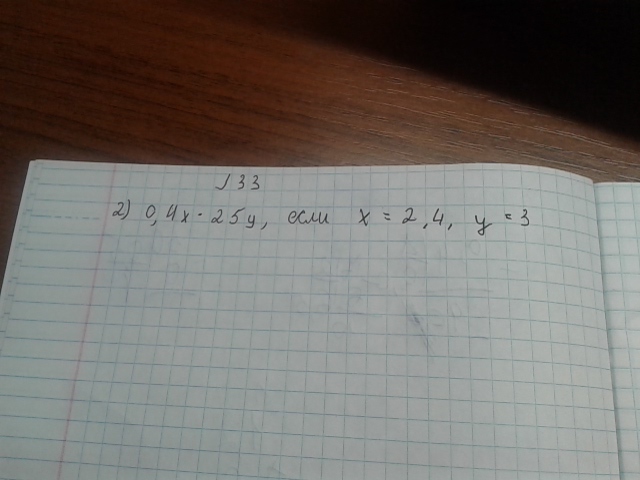 133
2) 0,4x - 25y, если x = 2,4, y = 3